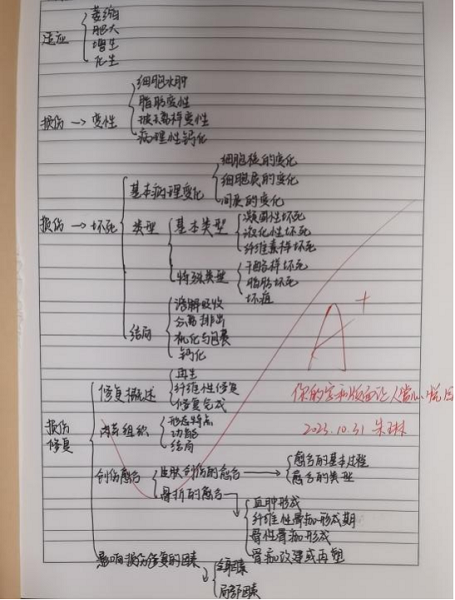 适应
萎缩
肥大
增生
化生
损伤 → 变性
细胞水肿
脂肪变性
玻璃样变性
病理性钙化
损伤 → 坏死
基本病理变化
细胞核的变化
细胞浆的变化
间质的变化
类型
基本类型
凝固性坏死
液化性坏死
纤维素样坏死
特殊类型
干酪样坏死
脂肪坏死
坏疽
结局
溶解吸收
分离排出
机化与包裹
钙化
损伤修复
修复概述
再生
纤维性修复
修复完成
肉芽组织
形态特点
功能
结局
创伤愈合
皮肤创伤的愈合
愈合的基本过程
愈合的类型
骨折的愈合
血肿形成
纤维性骨痂形成期
骨性骨痂形成
骨痂改建或再塑
影响损伤修复的因素
全身因素
局部因素
A+
你的字和版面让人赏心悦目
2023.10.31